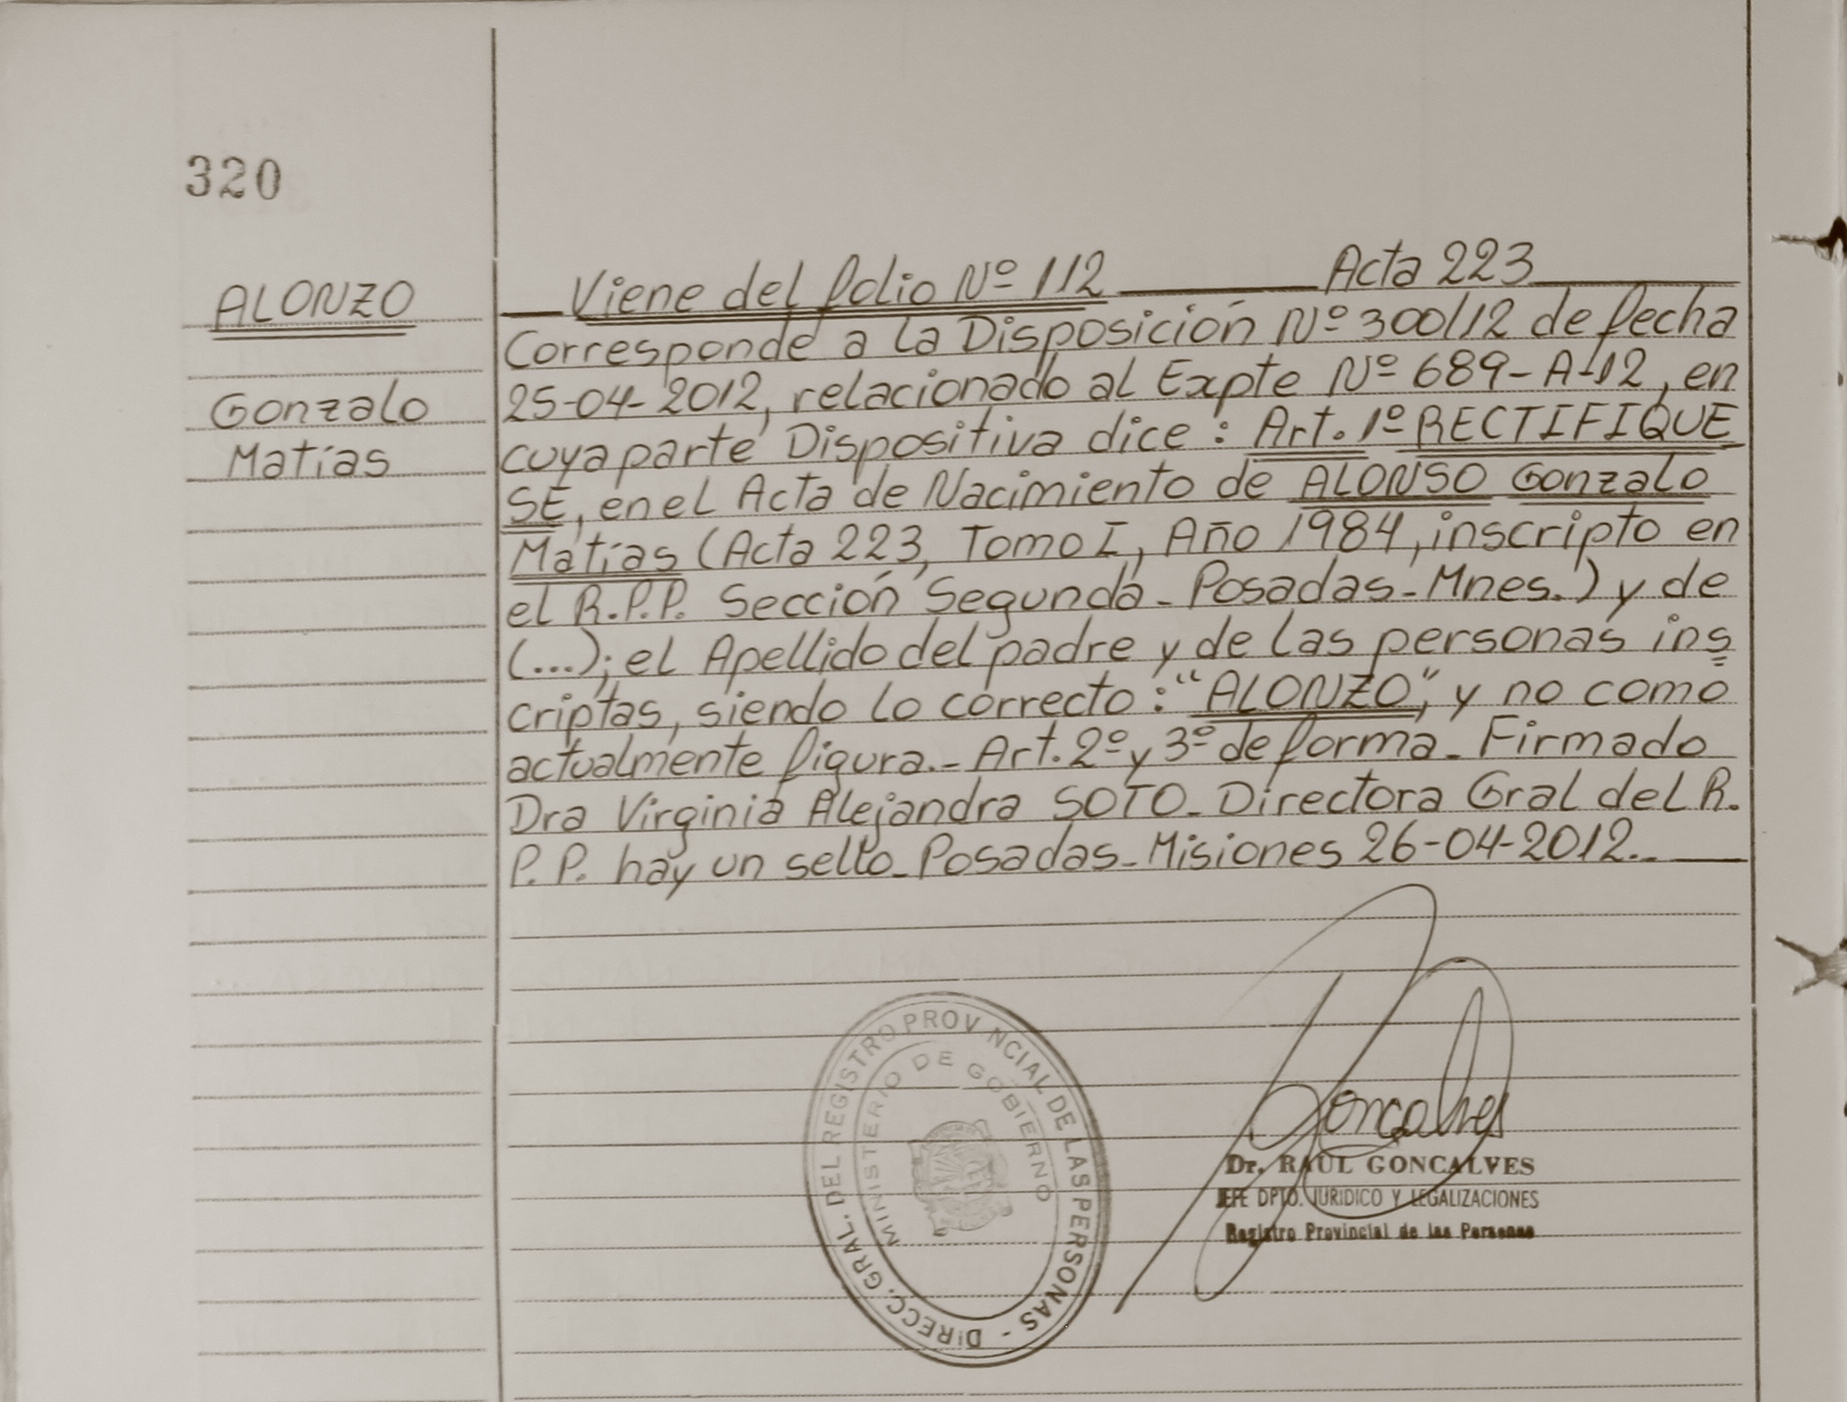 320
ALONZO
Gonzalo
Matías
Viene del folio Nº 112 Acta 223
Corresponde a la Disposición Nº 300/12 de fecha
25-04-2012, relacionado al Expte Nº 689-A-12, en
cuya parte Dispositiva dice: Art. 1º RECTIFIQUE
SE, en el Acta de Nacimiento de ALONSO Gonzalo
Matías (Acta 223, Tomo I, Año 1984, inscripto en
el R.P.P. Sección Segunda - Posadas - Mnes.) y de
(...); el Apellido del padre y de las personas ins
criptas, siendo lo correcto: "ALONZO", y no como
actualmente figura.- Art. 2º y 3º de forma - Firmado
Dra Virginia Alejandra SOTO - Directora Gral del R.
P.P. hay un sello - Posadas - Misiones 26-04-2012.-
DIRECC. GRAL. DEL REGISTRO PROVINCIAL DE LAS PERSONAS -
MINISTERIO DE GOBIERNO
Goncalves
Dr. RAUL GONCALVES
JEFE DPTO. JURIDICO Y LEGALIZACIONES
Registro Provincial de las Personas